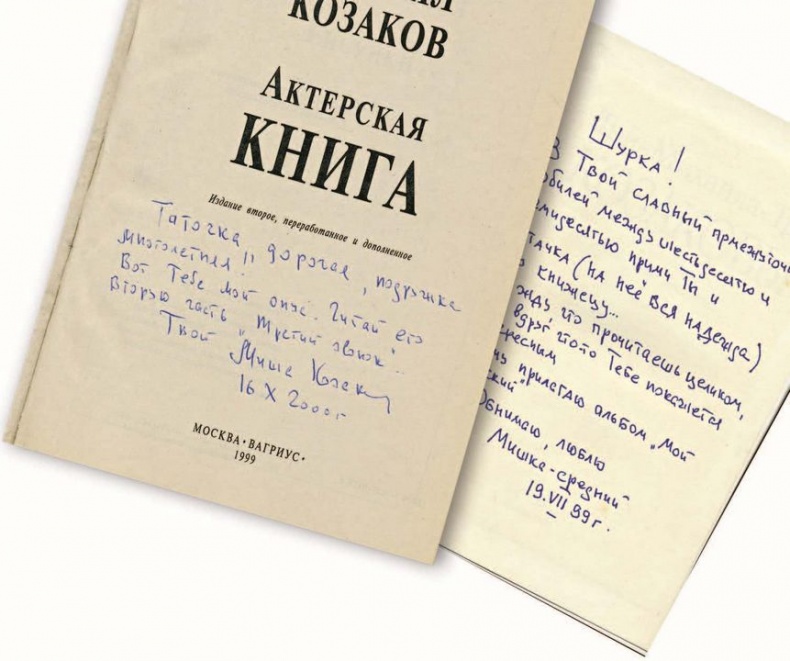 КОЗАКОВ
АКТЕРСКАЯ
КНИГА
Издание второе, переработанное и дополненное
Таточка, дорогая, подружка
многолетняя!
Вот Тебе мой опус. Читай его
вторую часть „Третий звонок"...
Твой Миша Козаков
16 X 2000г
МОСКВА • ВАГРИУС •
1999
Шурка!
В Твой славный промежуточн
юбилей между шестьдесятью и
семидесятью прими Ты и
Таточка (на неё вся надежда)
книжецу...
что прочитаешь целиком,
вдруг что-то Тебе покажется
прилагаю альбом „Мой
Обнимаю, люблю
Мишка-средний
19.VII 99г.